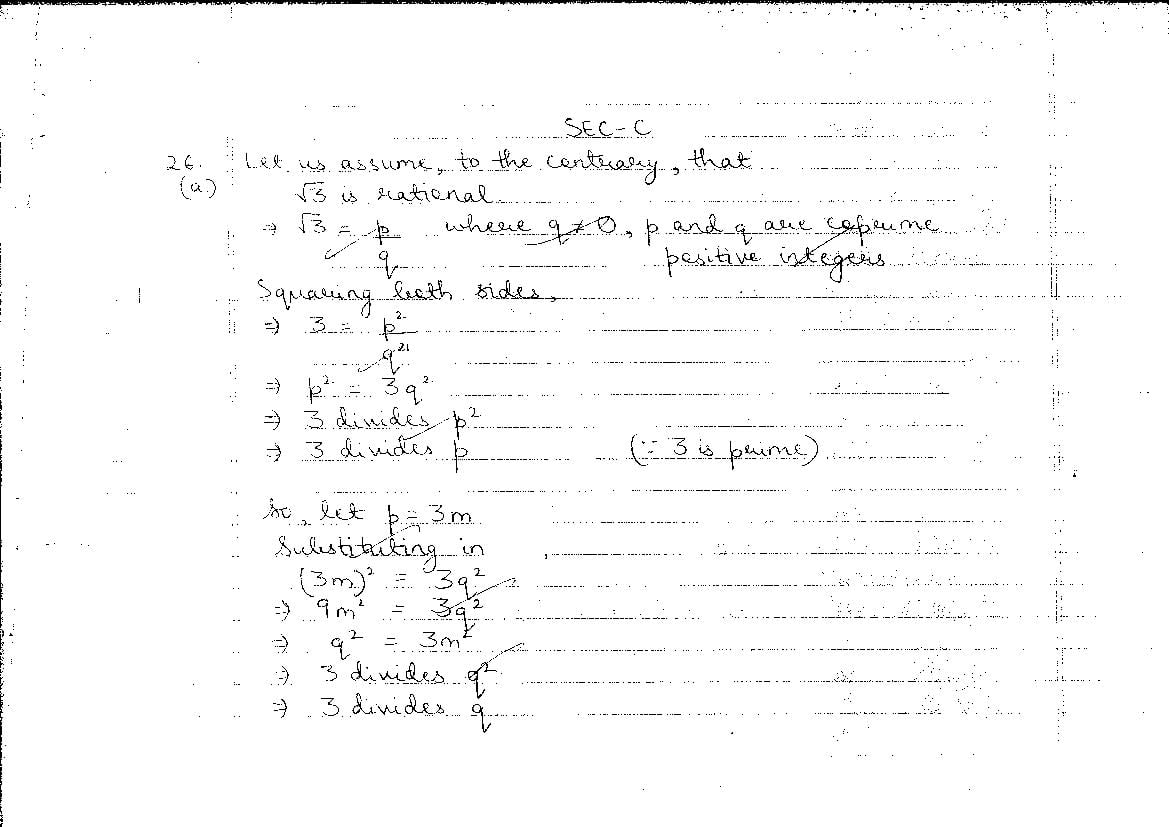 SEC-C
26. Let us assume, to the contrary, that
(a) √3 is rational
⇒ √3 = p/q where q ≠ 0, p and q are coprime
positive integers
Squaring both sides,
⇒ 3 = p²/q²
⇒ p² = 3q²
⇒ 3 divides p²
⇒ 3 divides p (∵ 3 is prime)
So, let p = 3m
Substituting in ,
(3m)² = 3q²
⇒ 9m² = 3q²
⇒ q² = 3m²
⇒ 3 divides q²
⇒ 3 divides q